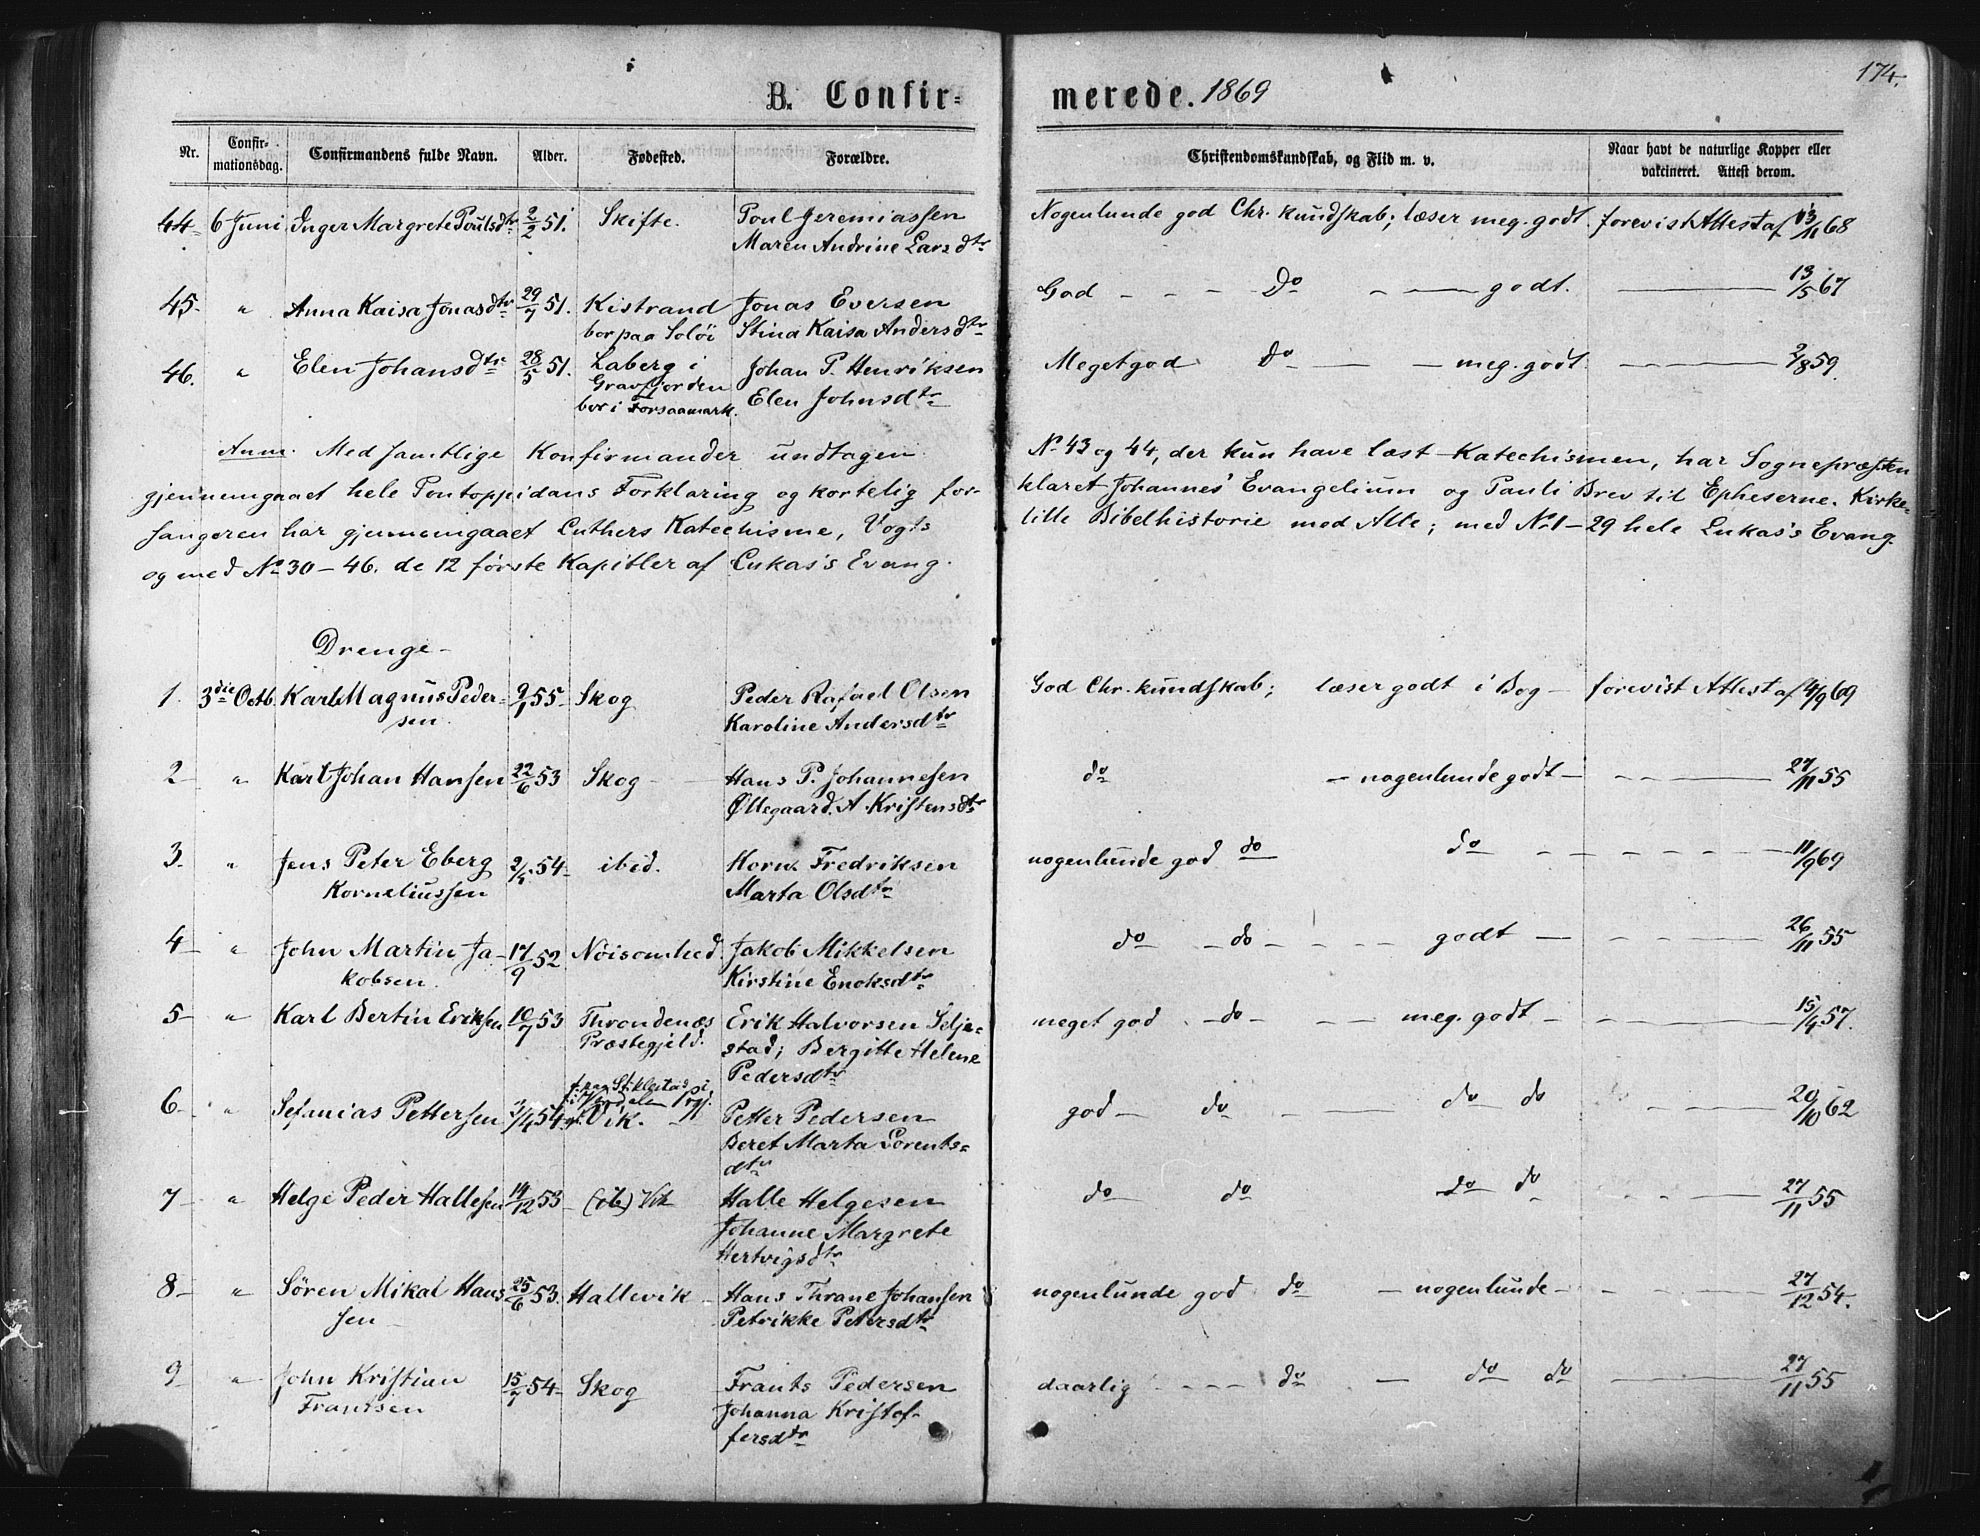 174.
B. Confir- merede. 1869
Nr. Confir- Confirmandens fulde Navn. Alder. Fødested. Forældre. Christendomskundskab, og Flid m. v. Naar havt de naturlige Kopper eller
mationsdag. vakcineret. Attest derom.
44 6 Juni Inger Margrete Poulsdtr 2/2 51. Skifte. Poul Jeremiassen Nogenlunde god Chr. kundskab; læser meg. godt. forevist Attest af 13/11 68
Maren Andrine Larsdtr
45. " Anna Kaisa Jonasdtr 29/7 51. Kistrand Jonas Eversen God - - - Do - — godt. — 13/5 67
bor paa Soløi Stina Kaisa Andersdtr
46. " Elen Johansdtr 28/5 51. Laberg i Johan P. Henriksen Meget god Do — — meg. godt. — 2/8 59.
Gravfjorden
bor i Forsaamark. Elen Johnsdtr
Anm. Med samtlige Konfirmander undtagen No 43 og 44, der kun have læst Katechismen, har Sognepræsten
gjennemgaaet hele Pontoppidans Forklaring og kortelig for- klaret Johannes' Evangelium og Pauli Brev til Epheserne. Kirke-
sangeren har gjennemgaaet Luthers Katechisme, Vogts lille Bibelhistorie med Alle; med No 1-29 hele Lukas's Evang.
og med No 30-46. de 12 første Kapitler af Lukas's Evang.
Drenge-
1. 3die Octb. Karl Magnus Peder- 9/1 55 Skog Peder Rafael Olsen God Chr. kundskab; læser godt i Bog - forevist Attest af 4/9 69
sen. Karoline Andersdtr
2 " Karl Johan Hansen 22/6 53 Skog Hans P. Johannesen do - nogenlunde godt - — 27/11 55
Øllegaard A. Kristensdtr
3. " Jens Peter Eberg 2/5 54 ibid. Korn. Fredriksen nogenlunde god do do - - - 11/9 69
Korneliussen Marta Olsdtr
4 " John Martin Ja- 17/9 52 Nøisomhed Jakob Mikkelsen do - do - - - godt — - - 26/11 55
kobsen. Kirstine Enoksdtr
5 " Karl Bertin Eriksen 10/7 53 Throndenæs Erik Halvorsen Selje- meget god - do - - — meg. godt - - - 15/4 57.
Præstegjeld. stad; Bergitte Helene
Pedersdtr
6 " Sefanias Pettersen 3/4 54 Vik. Petter Pedersen god - do - — do do - - — 20/10 62
Beret Marta Lorents-
dtr
7 " Helge Peder Hallesen 14/12 53 Vik Halle Helgesen do do do do - - — 27/11 55
Johanne Margrete
Hertvigsdtr
8 " Søren Mikal Han- 25/6 53. Hallevik Hans Thrane Johansen nogenlunde god do - nogenlunde - - - 27/12 54.
sen Petrikke Petersdtr
9 " John Kristian 15/7 54 Skog Frants Pedersen daarlig - - - do - do do — 27/11 55
Frantsen Johanna Kristof-
fersdtr